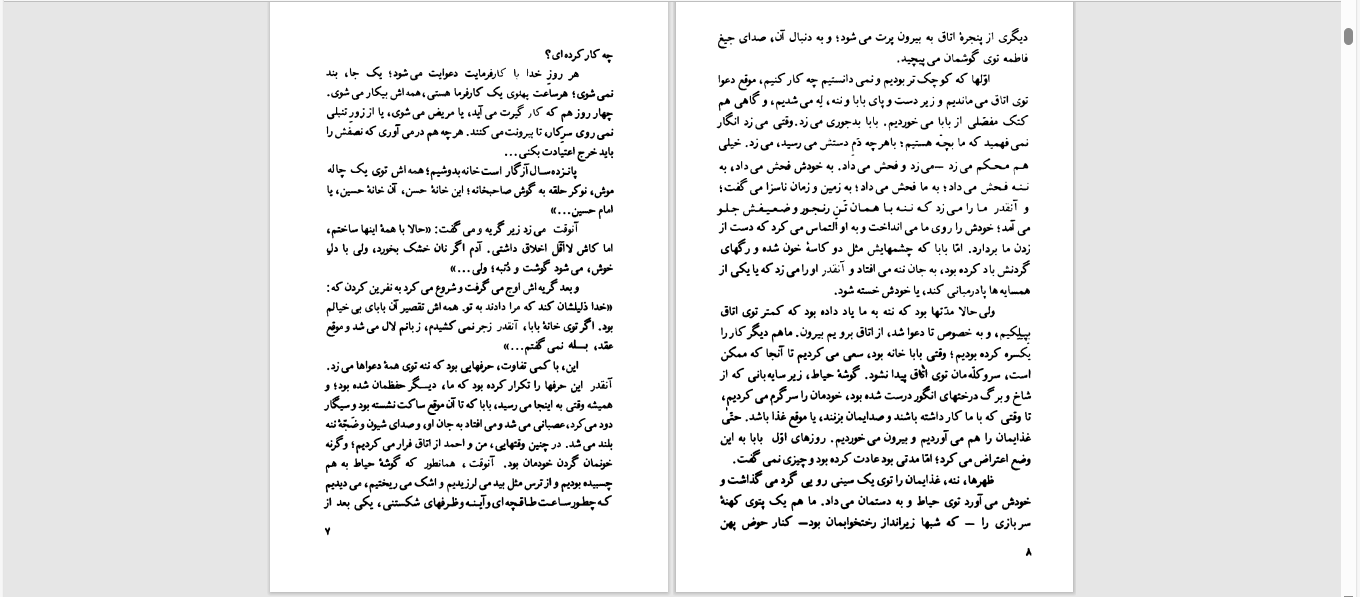 چه کار کرده ای؟
هر روز خدا با کارفرمایت دعوایت می شود؛ یک جا، بند
نمی شوی؛ هرساعت پهلوی یک کارفرما هستی، همه اش بیکار می شوی.
چهار روز هم که کار گیرت می آید، یا مریض می شوی، یا از زور تنبلی
نمی روی سرِکار، تا بیرونت می کنند. هرچه هم درمی آوری که نصفش را
باید خرج اعتیادت بکنی...
پانزده سال آزگار است خانه بدوشیم؛ همه اش توی یک چاله
موش، نوکر حلقه به گوش صاحبخانه؛ این خانهٔ حسن، آن خانهٔ حسین، یا
امام حسین...»
آنوقت می زد زیر گریه و می گفت: «حالا با همهٔ اینها ساختم،
اما کاش لااقّل اخلاق داشتی. آدم اگر نان خشک بخورد، ولی با دلِ
خوش، می شود گوشت و دُنبه؛ ولی...»
و بعد گریه اش اوج می گرفت و شروع می کرد به نفرین کردن که:
«خدا ذلیلشان کند که مرا دادند به تو. همه اش تقصیر آن بابای بی خیالم
بود. اگر توی خانهٔ بابا، آنقدر زجر نمی کشیدم، زبانم لال می شد و موقع
عقد، بسله نمی گفتم...»
این، با کمی تفاوت، حرفهایی بود که ننه توی همهٔ دعواها می زد.
آنقدر این حرفها را تکرار کرده بود که ما، دیگر حفظمان شده بود؛ و
همیشه وقتی به اینجا می رسید، بابا که تا آن موقع ساکت نشسته بود و سیگار
دود می کرد، عصبانی می شد و می افتاد به جان او، و صدای شیون و ضجّهٔ ننه
بلند می شد. در چنین وقتهایی، من و احمد از اتاق فرار می کردیم؛ وگرنه
خونمان گردن خودمان بود. آنوقت، همانطور که گوشهٔ حیاط به هم
چسبیده بودیم و از ترس مثل بید می لرزیدیم و اشک می ریختیم، می دیدیم
که چطور ساعت طاقچه ای و آینه و ظرفهای شکستنی، یکی بعد از
۷
دیگری از پنجرهٔ اتاق به بیرون پرت می شود؛ و به دنبال آن، صدای جیغ
فاطمه توی گوشمان می پیچید.
اوّلها که کوچک تر بودیم و نمی دانستیم چه کار کنیم، موقع دعوا
توی اتاق می ماندیم و زیر دست و پای بابا و ننه، لِه می شدیم، و گاهی هم
کتک مفصّلی از بابا می خوردیم. بابا بدجوری می زد. وقتی می زد انگار
نمی فهمید که ما بچّه هستیم؛ باهرچه دَمِ دستش می رسید، می زد. خیلی
هم محکم می زد — می زد و فحش می داد. به خودش فحش می داد، به
ننه فحش می داد؛ به ما فحش می داد؛ به زمین و زمان ناسزا می گفت؛
و آنقدر ما را می زد که ننه با همان تَنِ رنجور و ضعیفش جلو
می آمد؛ خودش را روی ما می انداخت و به او التماس می کرد که دست از
زدن ما بردارد. امّا بابا که چشمهایش مثل دو کاسهٔ خون شده و رگهای
گردنش باد کرده بود، به جان ننه می افتاد و آنقدر او را می زد که یا یکی از
همسایه ها پادرمیانی کند، یا خودش خسته شود.
ولی حالا مدّتها بود که ننه به ما یاد داده بود که کمتر توی اتاق
بپیلکیم، و به خصوص تا دعوا شد، از اتاق برویم بیرون. ماهم دیگر کار را
یکسره کرده بودیم؛ وقتی بابا خانه بود، سعی می کردیم تا آنجا که ممکن
است، سر و کلّه مان توی اتاق پیدا نشود. گوشهٔ حیاط، زیر سایه بانی که از
شاخ و برگ درختهای انگور درست شده بود، خودمان را سرگرم می کردیم،
تا وقتی که با ما کار داشته باشند و صدایمان بزنند، یا موقع غذا باشد. حتّیٰ
غذایمان را هم می آوردیم و بیرون می خوردیم. روزهای اوّل بابا به این
وضع اعتراض می کرد؛ امّا مدتی بود عادت کرده بود و چیزی نمی گفت.
ظهرها، ننه، غذایمان را توی یک سینی رویی گرد می گذاشت و
خودش می آورد توی حیاط و به دستمان می داد. ما هم یک پتوی کهنهٔ
سربازی را — که شبها زیرانداز رختخوابمان بود — کنار حوض پهن
۸